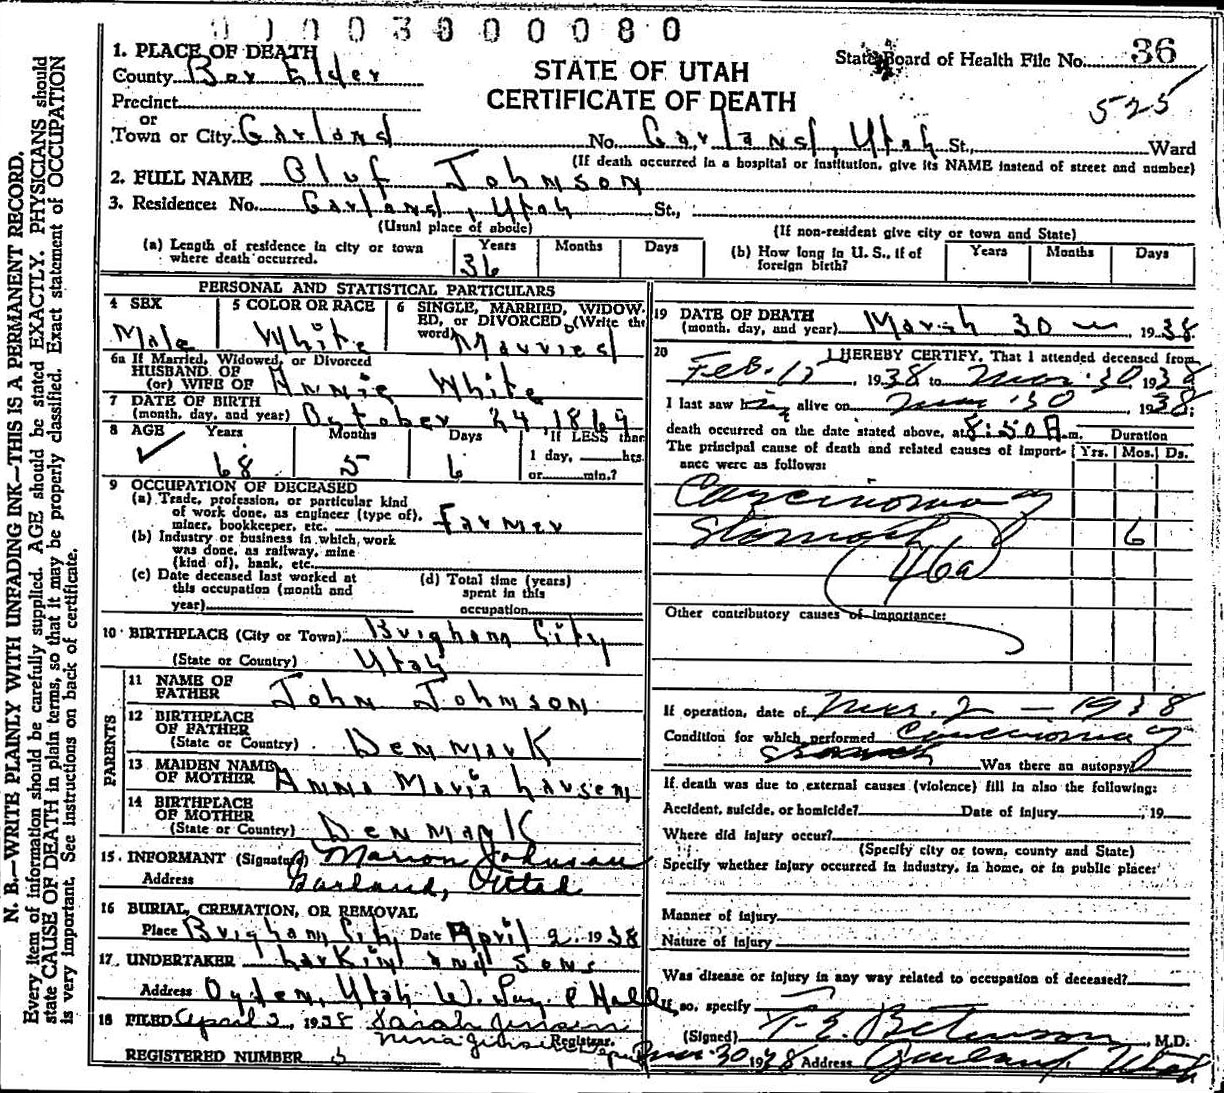 0 0 0 3 0 0 0 0 8 0
N. B.—WRITE PLAINLY WITH UNFADING INK—THIS IS A PERMANENT RECORD.
Every item of information should be carefully supplied. AGE should be stated EXACTLY. PHYSICIANS should
state CAUSE OF DEATH in plain terms, so that it may be properly classified. Exact statement of OCCUPATION
is very important. See instructions on back of certificate.
1. PLACE OF DEATH
County Box Elder
Precinct
or
Town or City Garland
STATE OF UTAH
CERTIFICATE OF DEATH
State Board of Health File No. 36
525
No. Garland, Utah St., Ward
(If death occurred in a hospital or institution, give its NAME instead of street and number)
2. FULL NAME Oluf Johnson
3. Residence: No. Garland, Utah St.,
(Usual place of abode)
(If non-resident give city or town and State)
(a) Length of residence in city or town where death occurred. Years 36 Months Days
(b) How long in U. S., if of foreign birth? Years Months Days
PERSONAL AND STATISTICAL PARTICULARS
4 SEX Male
5 COLOR OR RACE White
6 SINGLE, MARRIED, WIDOWED, or DIVORCED (Write the word) Married
6a If Married, Widowed, or Divorced
HUSBAND OF
(or) WIFE OF Annie White
7 DATE OF BIRTH
(month, day, and year) October 24, 1869
8 AGE Years 68 Months 5 Days 6 If LESS than
1 day, hrs.
or min.?
9 OCCUPATION OF DECEASED
(a) Trade, profession, or particular kind
of work done, as engineer (type of),
miner, bookkeeper, etc. Farmer
(b) Industry or business in which work
was done, as railway, mine
(kind of), bank, etc.
(c) Date deceased last worked at
this occupation (month and
year)
(d) Total time (years)
spent in this
occupation
10 BIRTHPLACE (City or Town) Brigham City
(State or Country) Utah
PARENTS
11 NAME OF
FATHER John Johnson
12 BIRTHPLACE
OF FATHER
(State or Country) Denmark
13 MAIDEN NAME
OF MOTHER Anna Maria Larsen
14 BIRTHPLACE
OF MOTHER
(State or Country) Denmark
15. INFORMANT (Signature) Marion Johnson
Address Garland, Utah
16 BURIAL, CREMATION, OR REMOVAL
Place Brigham City Date April 2, 1938
17. UNDERTAKER Larkin and Sons
Address Ogden, Utah
18 FILED April 2, 1938 Sarah Jensen
Registrar.
REGISTERED NUMBER 5
19 DATE OF DEATH
(month, day, and year) March 30 1938
20 I HEREBY CERTIFY, That I attended deceased from
Feb. 15, 1938 to Mar. 30 1938
I last saw him alive on Mar 30, 1938;
death occurred on the date stated above, at 8:50 A.m.
The principal cause of death and related causes of importance were as follows:
Duration
Yrs. Mos. Ds.
Carcinoma of
Stomach 6
46a
Other contributory causes of importance:
If operation, date of Mar. 2 — 1938
Condition for which performed Carcinoma of
Stomach Was there an autopsy?
If death was due to external causes (violence) fill in also the following:
Accident, suicide, or homicide? Date of injury , 19
Where did injury occur?
(Specify city or town, county and State)
Specify whether injury occurred in industry, in home, or in public place:
Manner of injury
Nature of injury
Was disease or injury in any way related to occupation of deceased?
If so, specify
(Signed) M.D.
Mar. 30 1938 Address Garland, Utah